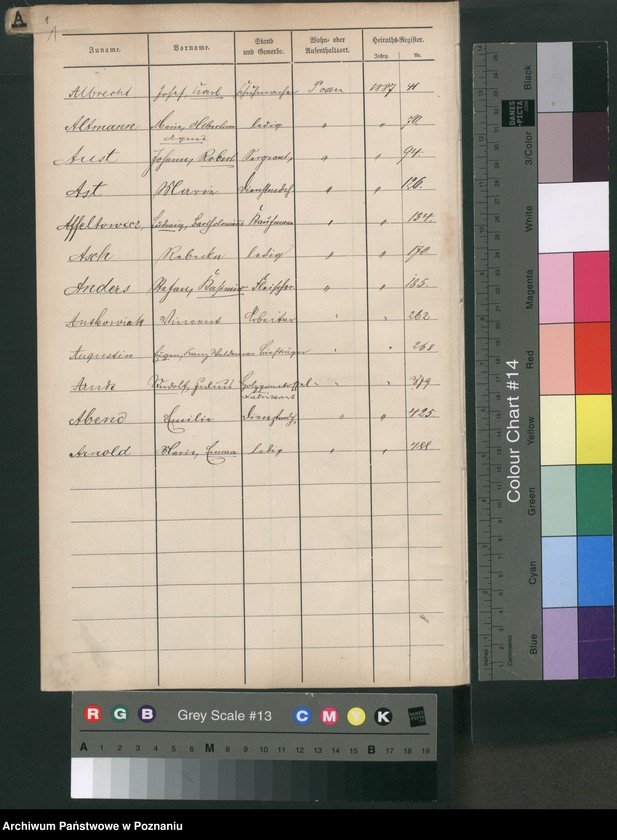 A
1
A
Zuname. Vorname. Stand und Gewerbe. Wohn- oder Aufenthaltsort. Heiraths-Register.
Jahrg. Nr.
Albrecht Josef, Karl Schuhmacher Posen 1887
Altmann Maria, ledig " "
Agnes
Aust Johann, Robert Sergeant " " 94
Ast Maria " " 126.
Affeltowicz, Ludwig, Bartholomäus Kaufmann " " 134
Asch Rebecka ledig " " 170
Anders Stefan, Kasimir Fleischer " " 185
Antkowiak Vincent Arbeiter " " 262
Augustin Eugen, Franz Waldemar " " 268
Arndt Rudolf, Julius " " 379
Fabrikant
Abend Emilie " " 425
Arnold Maria, Emma ledig " " 488
Colour Chart #14
Black
3/Color
White
Magenta
Red
Yellow
Green
Cyan
Blue
DANES-PICTA
Inches
Centimetres
R G B Grey Scale #13 C M Y K
A 1 2 3 4 5 6 M 8 9 10 11 12 13 14 15 B 17 18 19
Archiwum Państwowe w Poznaniu